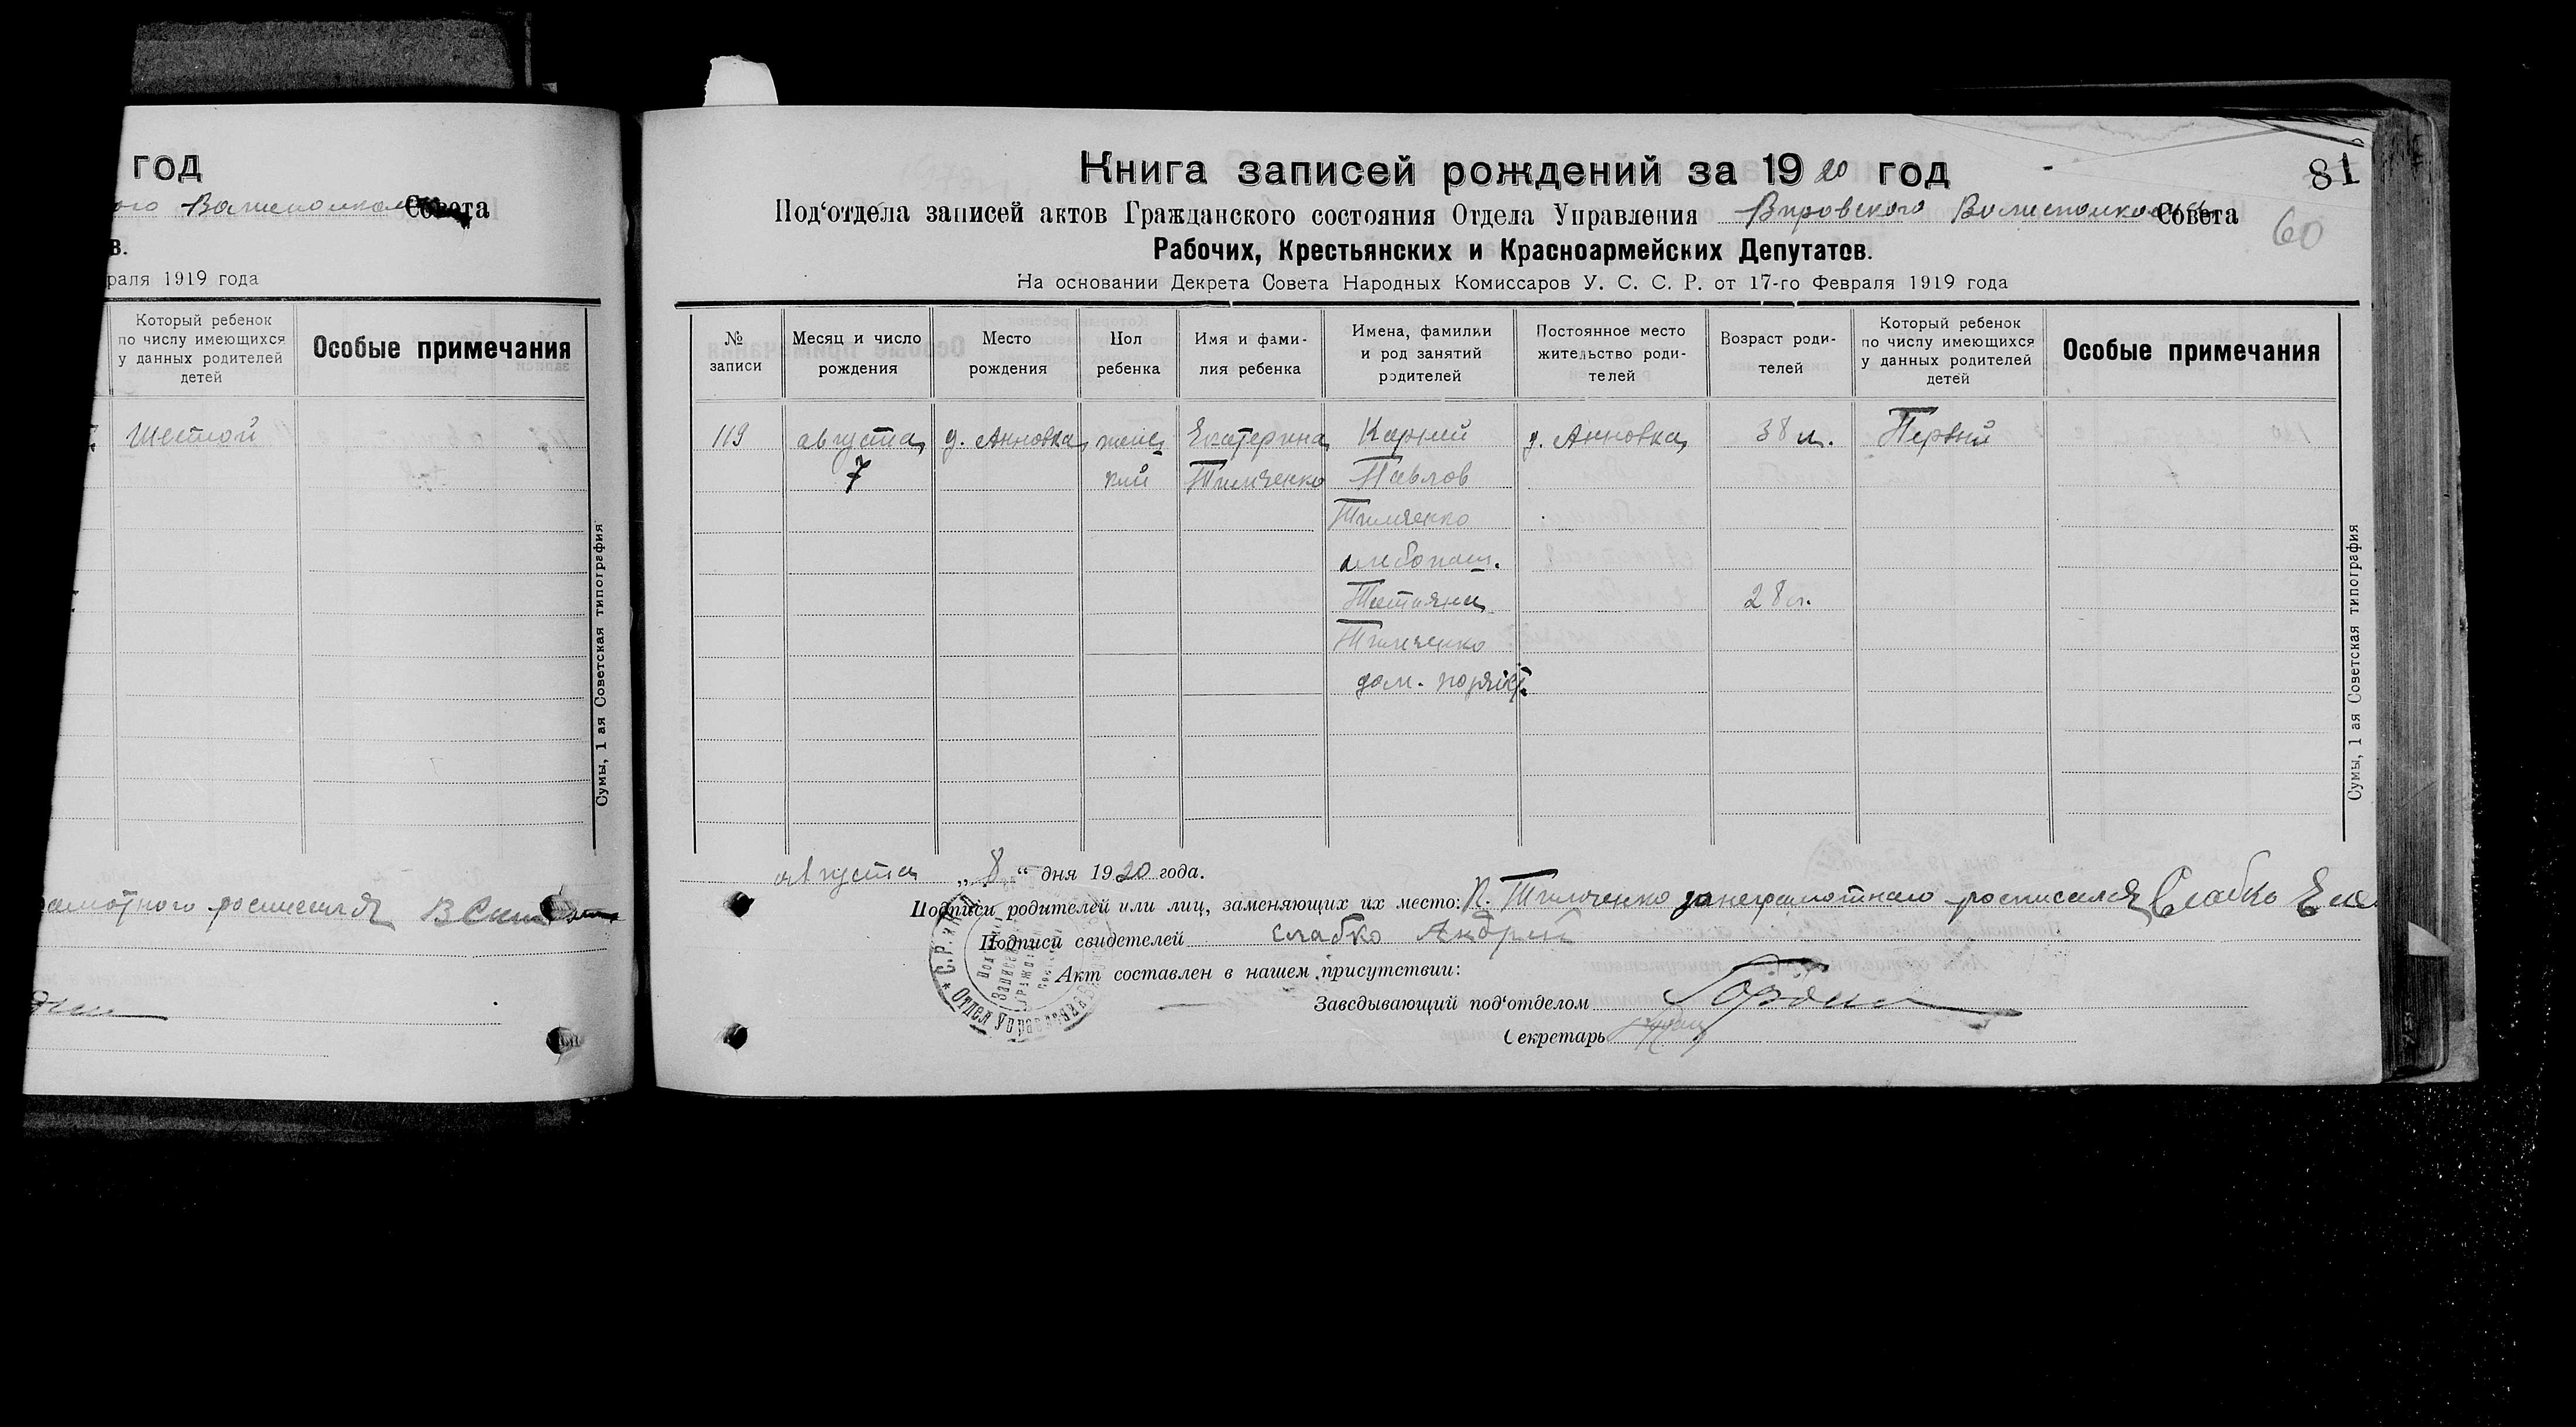 год
Волисполкома Совета
в.
раля 1919 года
Который ребенок
по числу имеющихся
у данных родителей
детей
Особые примечания
Шестой
Сумы, 1 ая Советская типография
Книга записей рождений за 1920 год
81
Под‘отдела записей актов Гражданского состояния Отдела Управления Вировского Волисполкома Совета
60
Рабочих, Крестьянских и Красноармейских Депутатов.
На основании Декрета Совета Народных Комиссаров У. С. С. Р. от 17-го Февраля 1919 года
№ записи
Месяц и число рождения
Место рождения
Пол ребенка
Имя и фами-
лия ребенка
Имена, фамилии
и род занятий
родителей
Постоянное место
жительство роди-
телей
Возраст роди-
телей
Который ребенок
по числу имеющихся
у данных родителей
детей
Особые примечания
119 августа д. Анновка женс Екатерина Карпей д. Анновка 38 л. Первый
7 кий Тимченко Павлов
Тимченко
хлебопаш.
Татьяна 28 л.
Тимченко
дом.
Сумы, 1 ая Советская типография
августа „ 8 “ дня 1920 года.
Подписи родителей или лиц, заменяющих их место: К. Тимченко занеграмотнаго росписался Слабко
Подписи свидетелей Слабко Андрей
Акт составлен в нашем присутствии:
Заведывающий под‘отделом
Секретарь
Отдел Управления